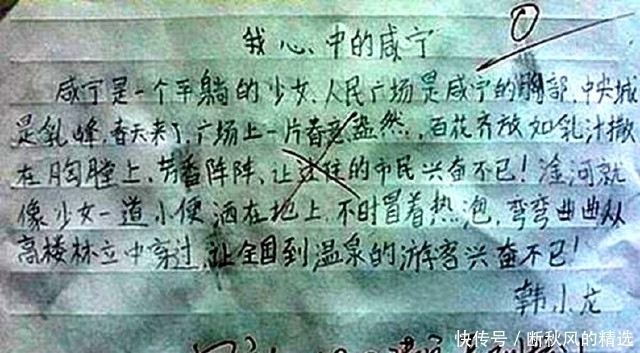 我心中的咸宁
0
咸宁是一个平躺的少女、人民广场是咸宁的胸部、中央城
是乳峰、春天来了、广场上一片春意盎然、百花齐放如乳汁撒
在胸膛上、芳香阵阵、让过往的市民兴奋不已！淦河就
像少女一道小便洒在地上、不时冒着热泡、弯弯曲曲从
高楼林立中穿过、让全国到温泉的游客兴奋不已！
韩小龙
快传号／断秋风的精选